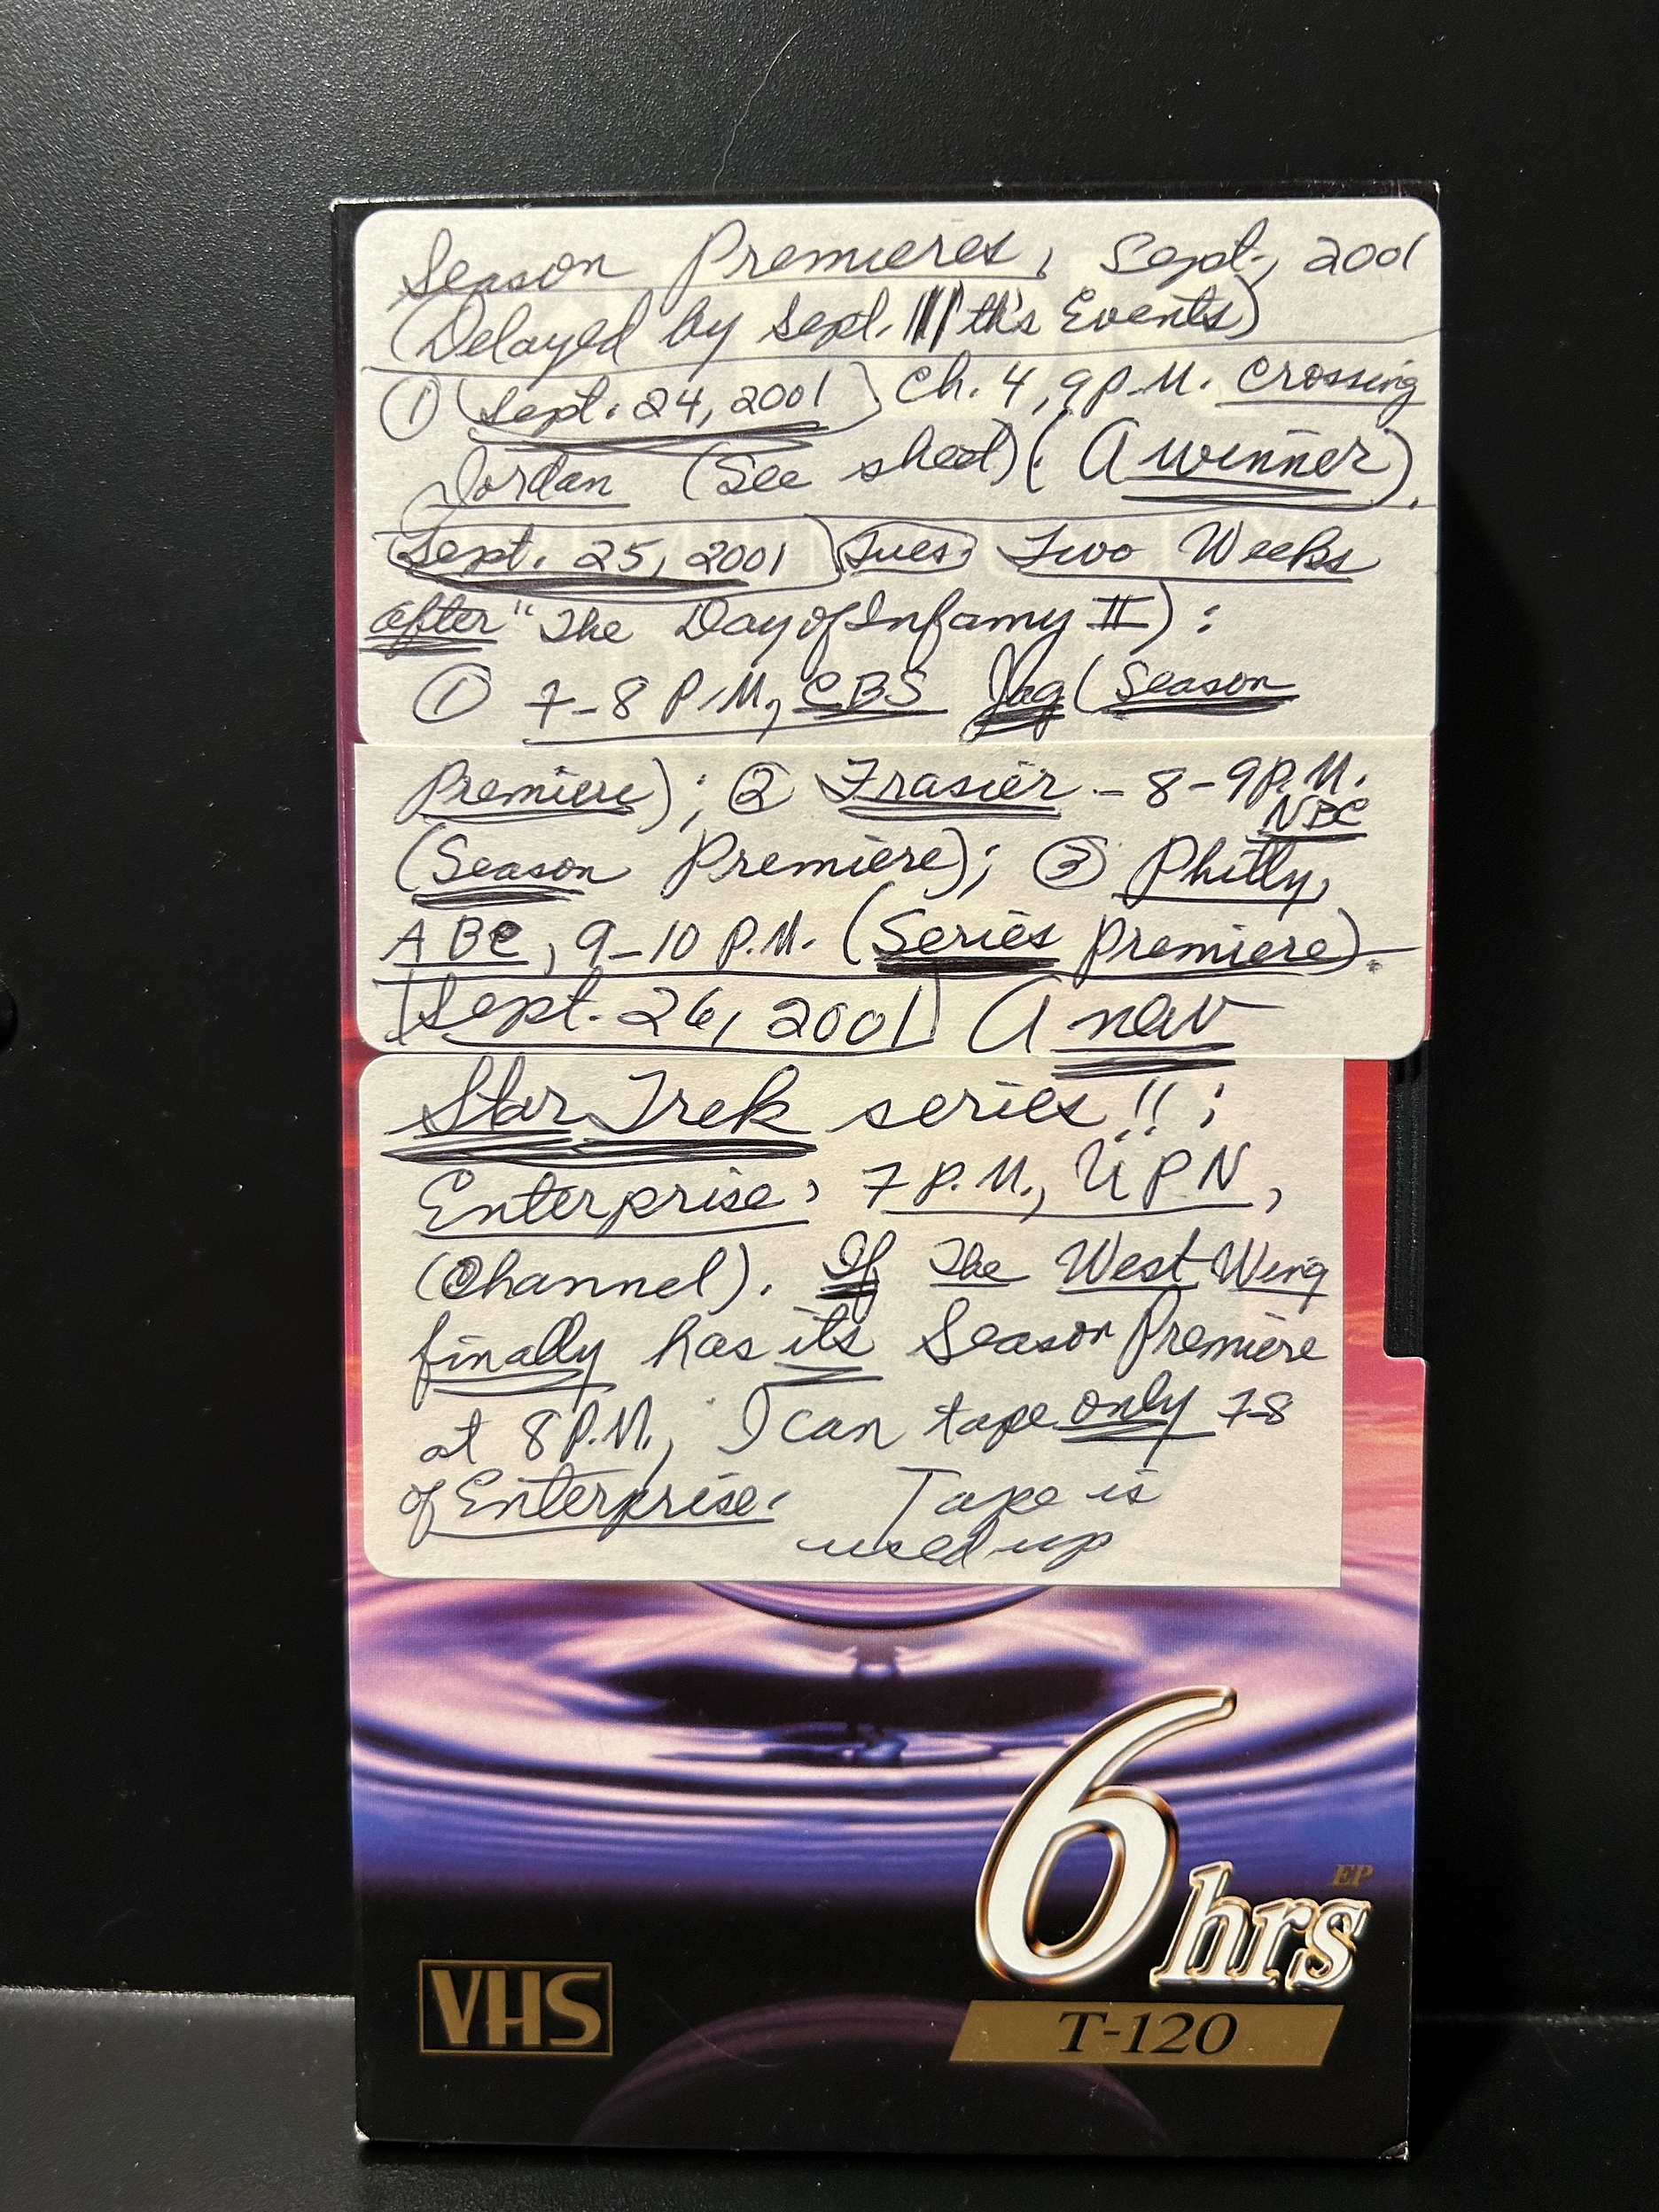 Season Premieres, Sept., 2001
(Delayed by Sept. 11th's Events)
① (Sept. 24, 2001) Ch. 4, 9 P.M. Crossing
Jordan (See sheet) (A winner).
(Sept. 25, 2001) (Tues) Two Weeks
after "The Day of Infamy II):
① 7-8 P.M., CBS Jag (Season
Premiere); ② Frasier - 8-9 P.M.
NBC
(Season Premiere); ③ Philly,
ABC, 9-10 P.M. (Series premiere).
[Sept. 26, 2001] A new
Star Trek series!!;
Enterprise, 7 P.M., UPN,
(Channel). If The West Wing
finally has its Season Premiere
at 8 P.M., I can tape only 7-8
of Enterprise. Tape is
used up
6 hrs
EP
VHS
T-120